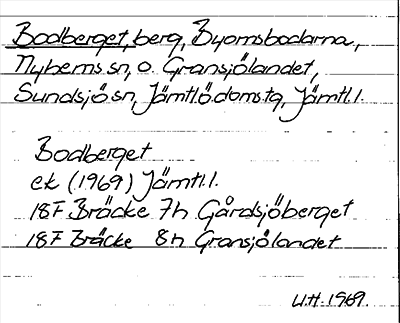 Bodberget, berg, Byomsbodarna,
Nyhems sn, o. Gransjölandet,
Sundsjö sn, Jämtl.ö.doms.tg, Jämtl.l.
Bodberget
ek (1969) Jämtl.l.
18F Bräcke 7h Gårdsjöberget
18F Bräcke 8h Gransjölandet
U.H. 1969.